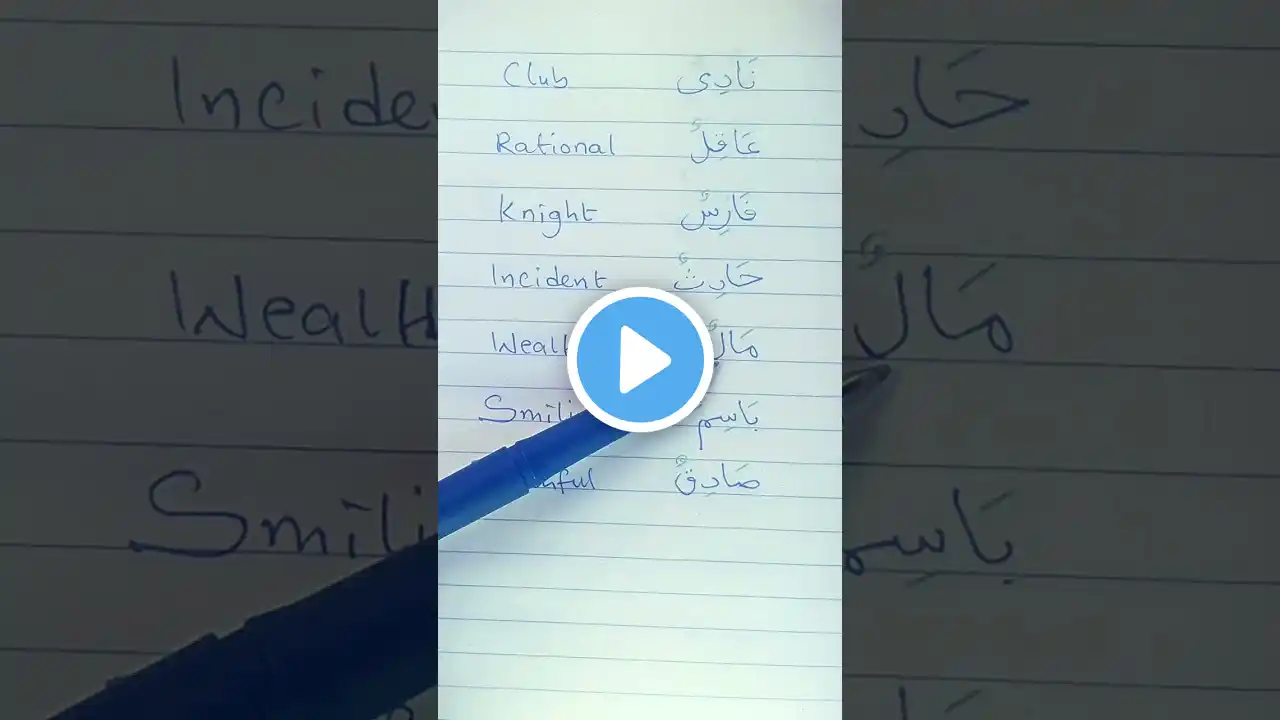 Club نَادِى
Rational عَاقِلٌ
Knight فَارِسٌ
Incident حَادِثٌ
مَالٌ
بَاسِمٌ
صَادِقٌ